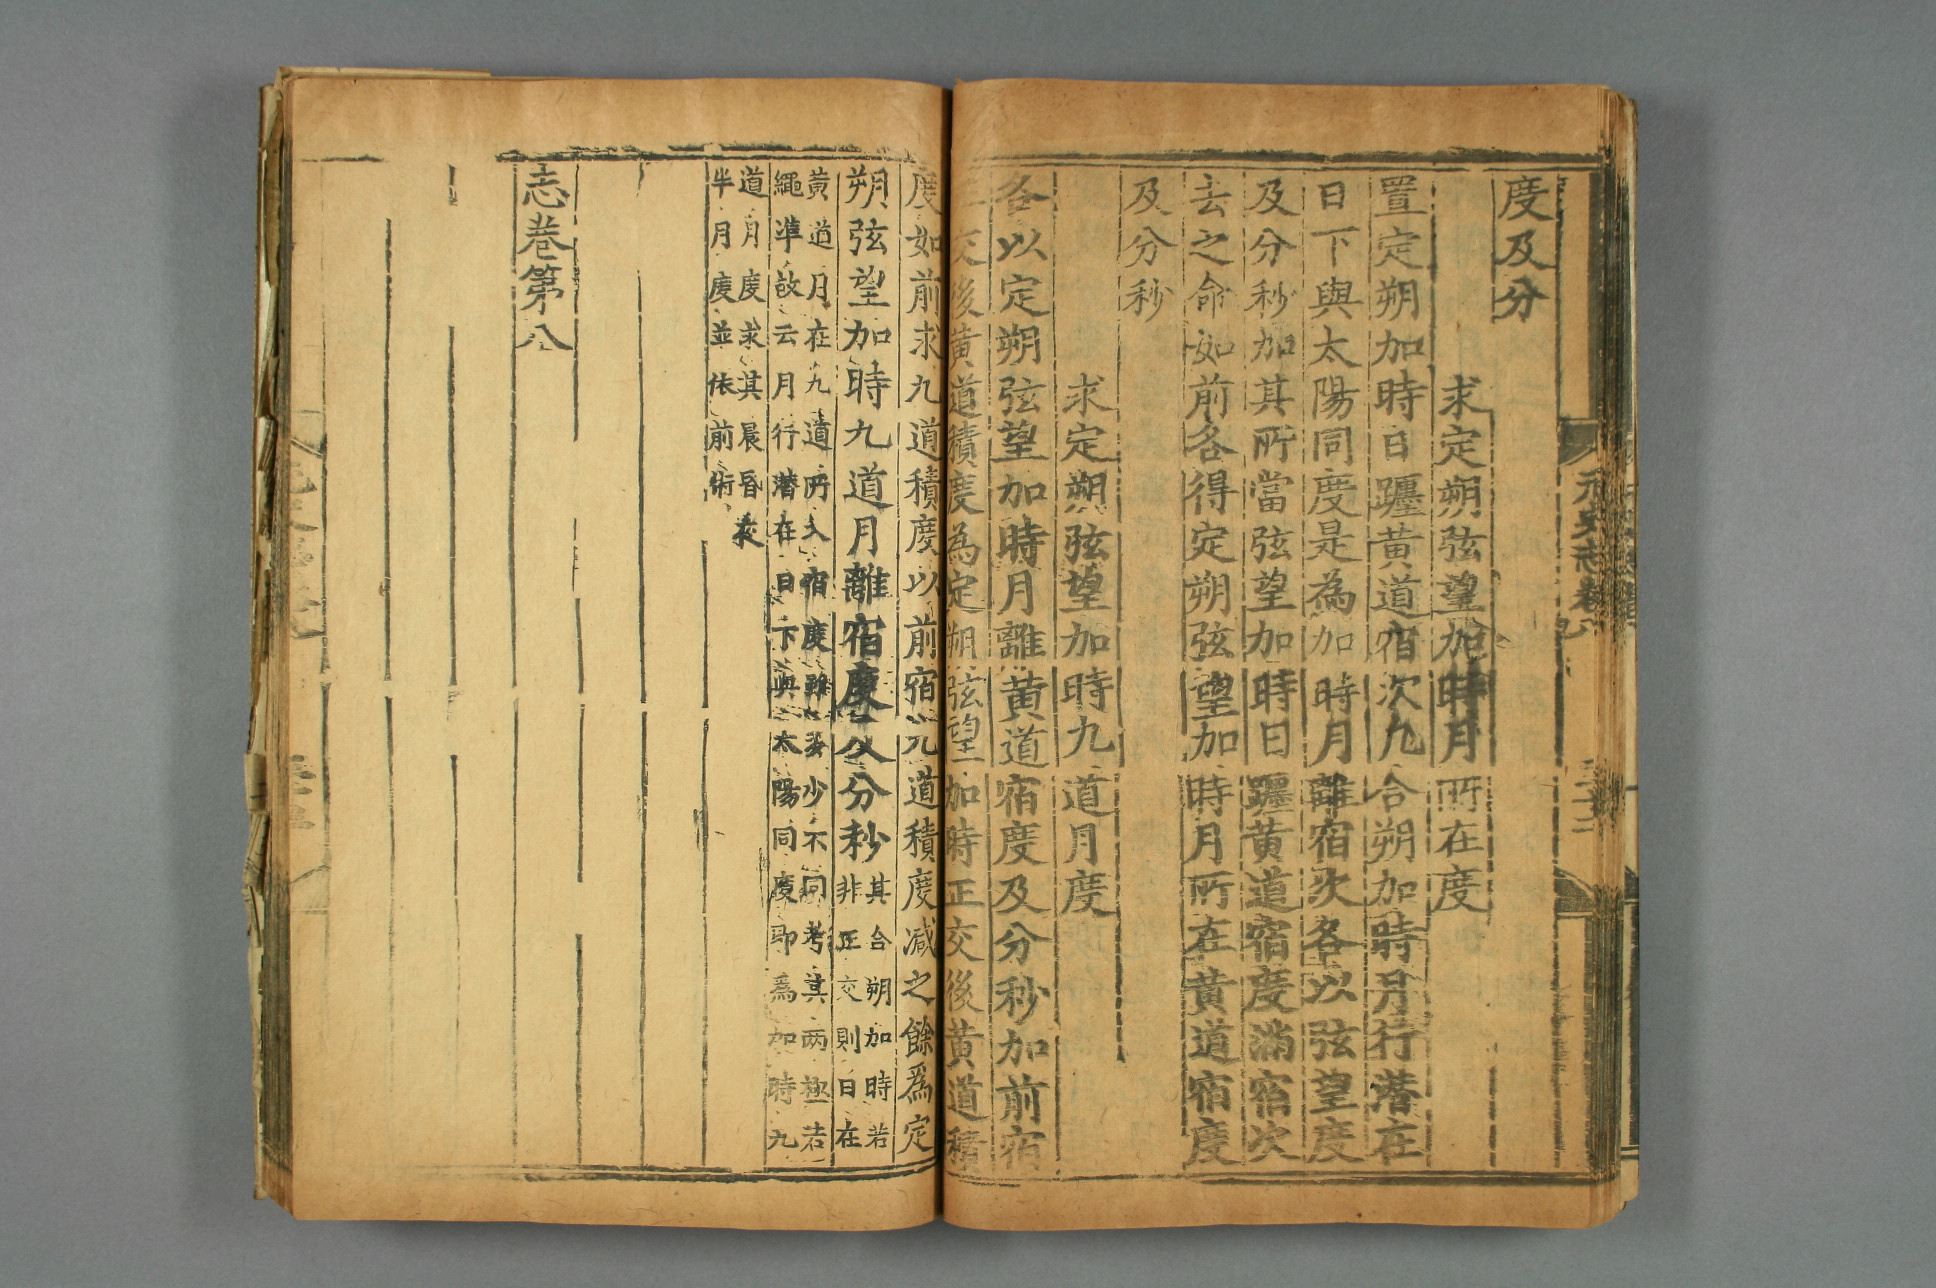 度及分
求定朔弦望加時月所在度
置定朔加時日躔黃道宿次凢合朔加時月行潜在
日下與太陽同度是為加時月離宿次各以弦望度
及分秒加其所當弦望加時日躔黃道宿度滿宿次
去之命如前各得定朔弦望加時月所在黃道宿度
及分秒
求定朔弦望加時九道月度
各以定朔弦望加時月離黃道宿度及分秒加前宿
正交後黃道積度為定朔弦望加時正交後黃道積
度如前求九道積度以前宿九道積度減之餘爲定
朔弦望加時九道月離宿度及分秒
其合朔加時若
非正交則日在
黃道月在九道所入宿度雖多少不同考其两極若
繩凖故云月行潜在日下與太陽同度即爲加時九
道月度求其晨昏夜
半月度並依前術
志卷第八
元史志卷八